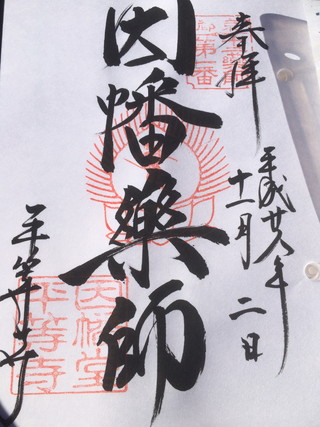 奉拝
平成廿八年
十一月二日
因幡薬師
平等寺
因幡堂
平等寺